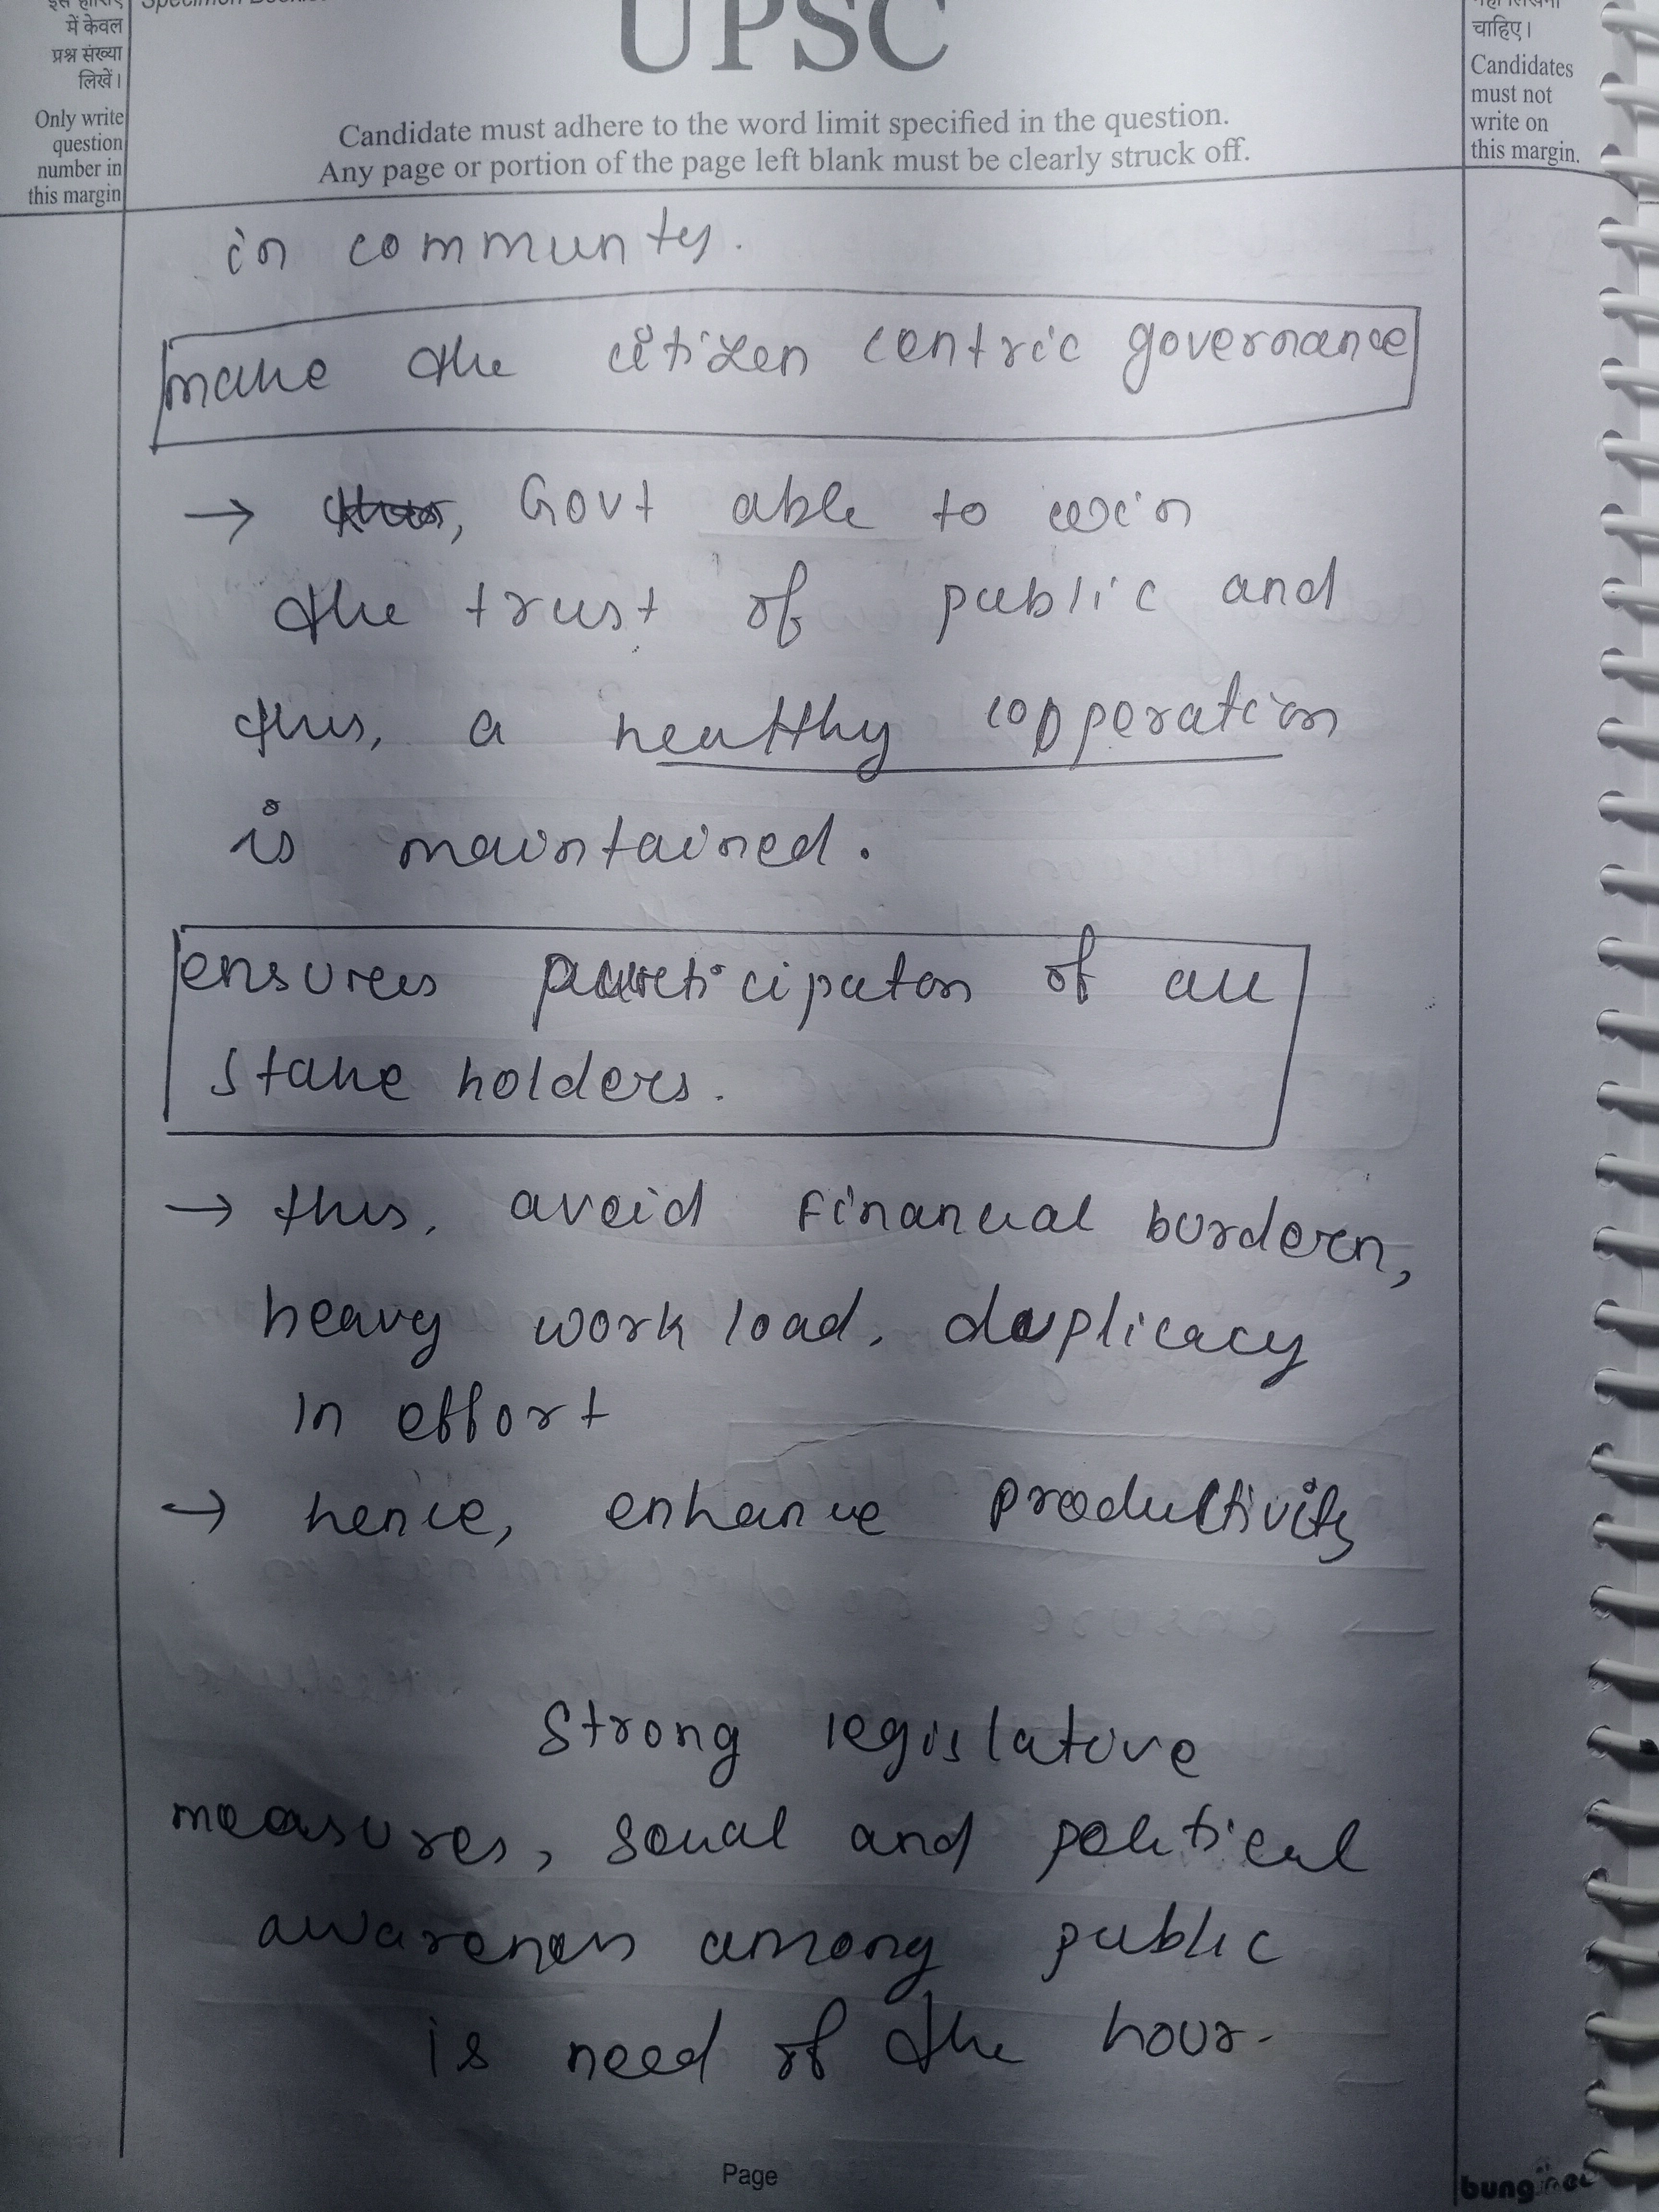 में केवल
प्रश्न संख्या
लिखें।
Only write
question
number in
this margin
UPSC
Candidate must adhere to the word limit specified in the question.
Any page or portion of the page left blank must be clearly struck off.
चाहिए।
Candidates
must not
write on
this margin.
in communty.
make the citizen centric governance
→ Govt able to win
the trust of public and
thus, a healthy copperation
is maintained.
ensures participaton of all
stake holders.
→ thus, avoid financial burdern,
heavy work load, duplicacy
in effort
→ hence, enhance productivity
Strong legislative
measures, social and political
awareness among public
is need of the hour.
Page